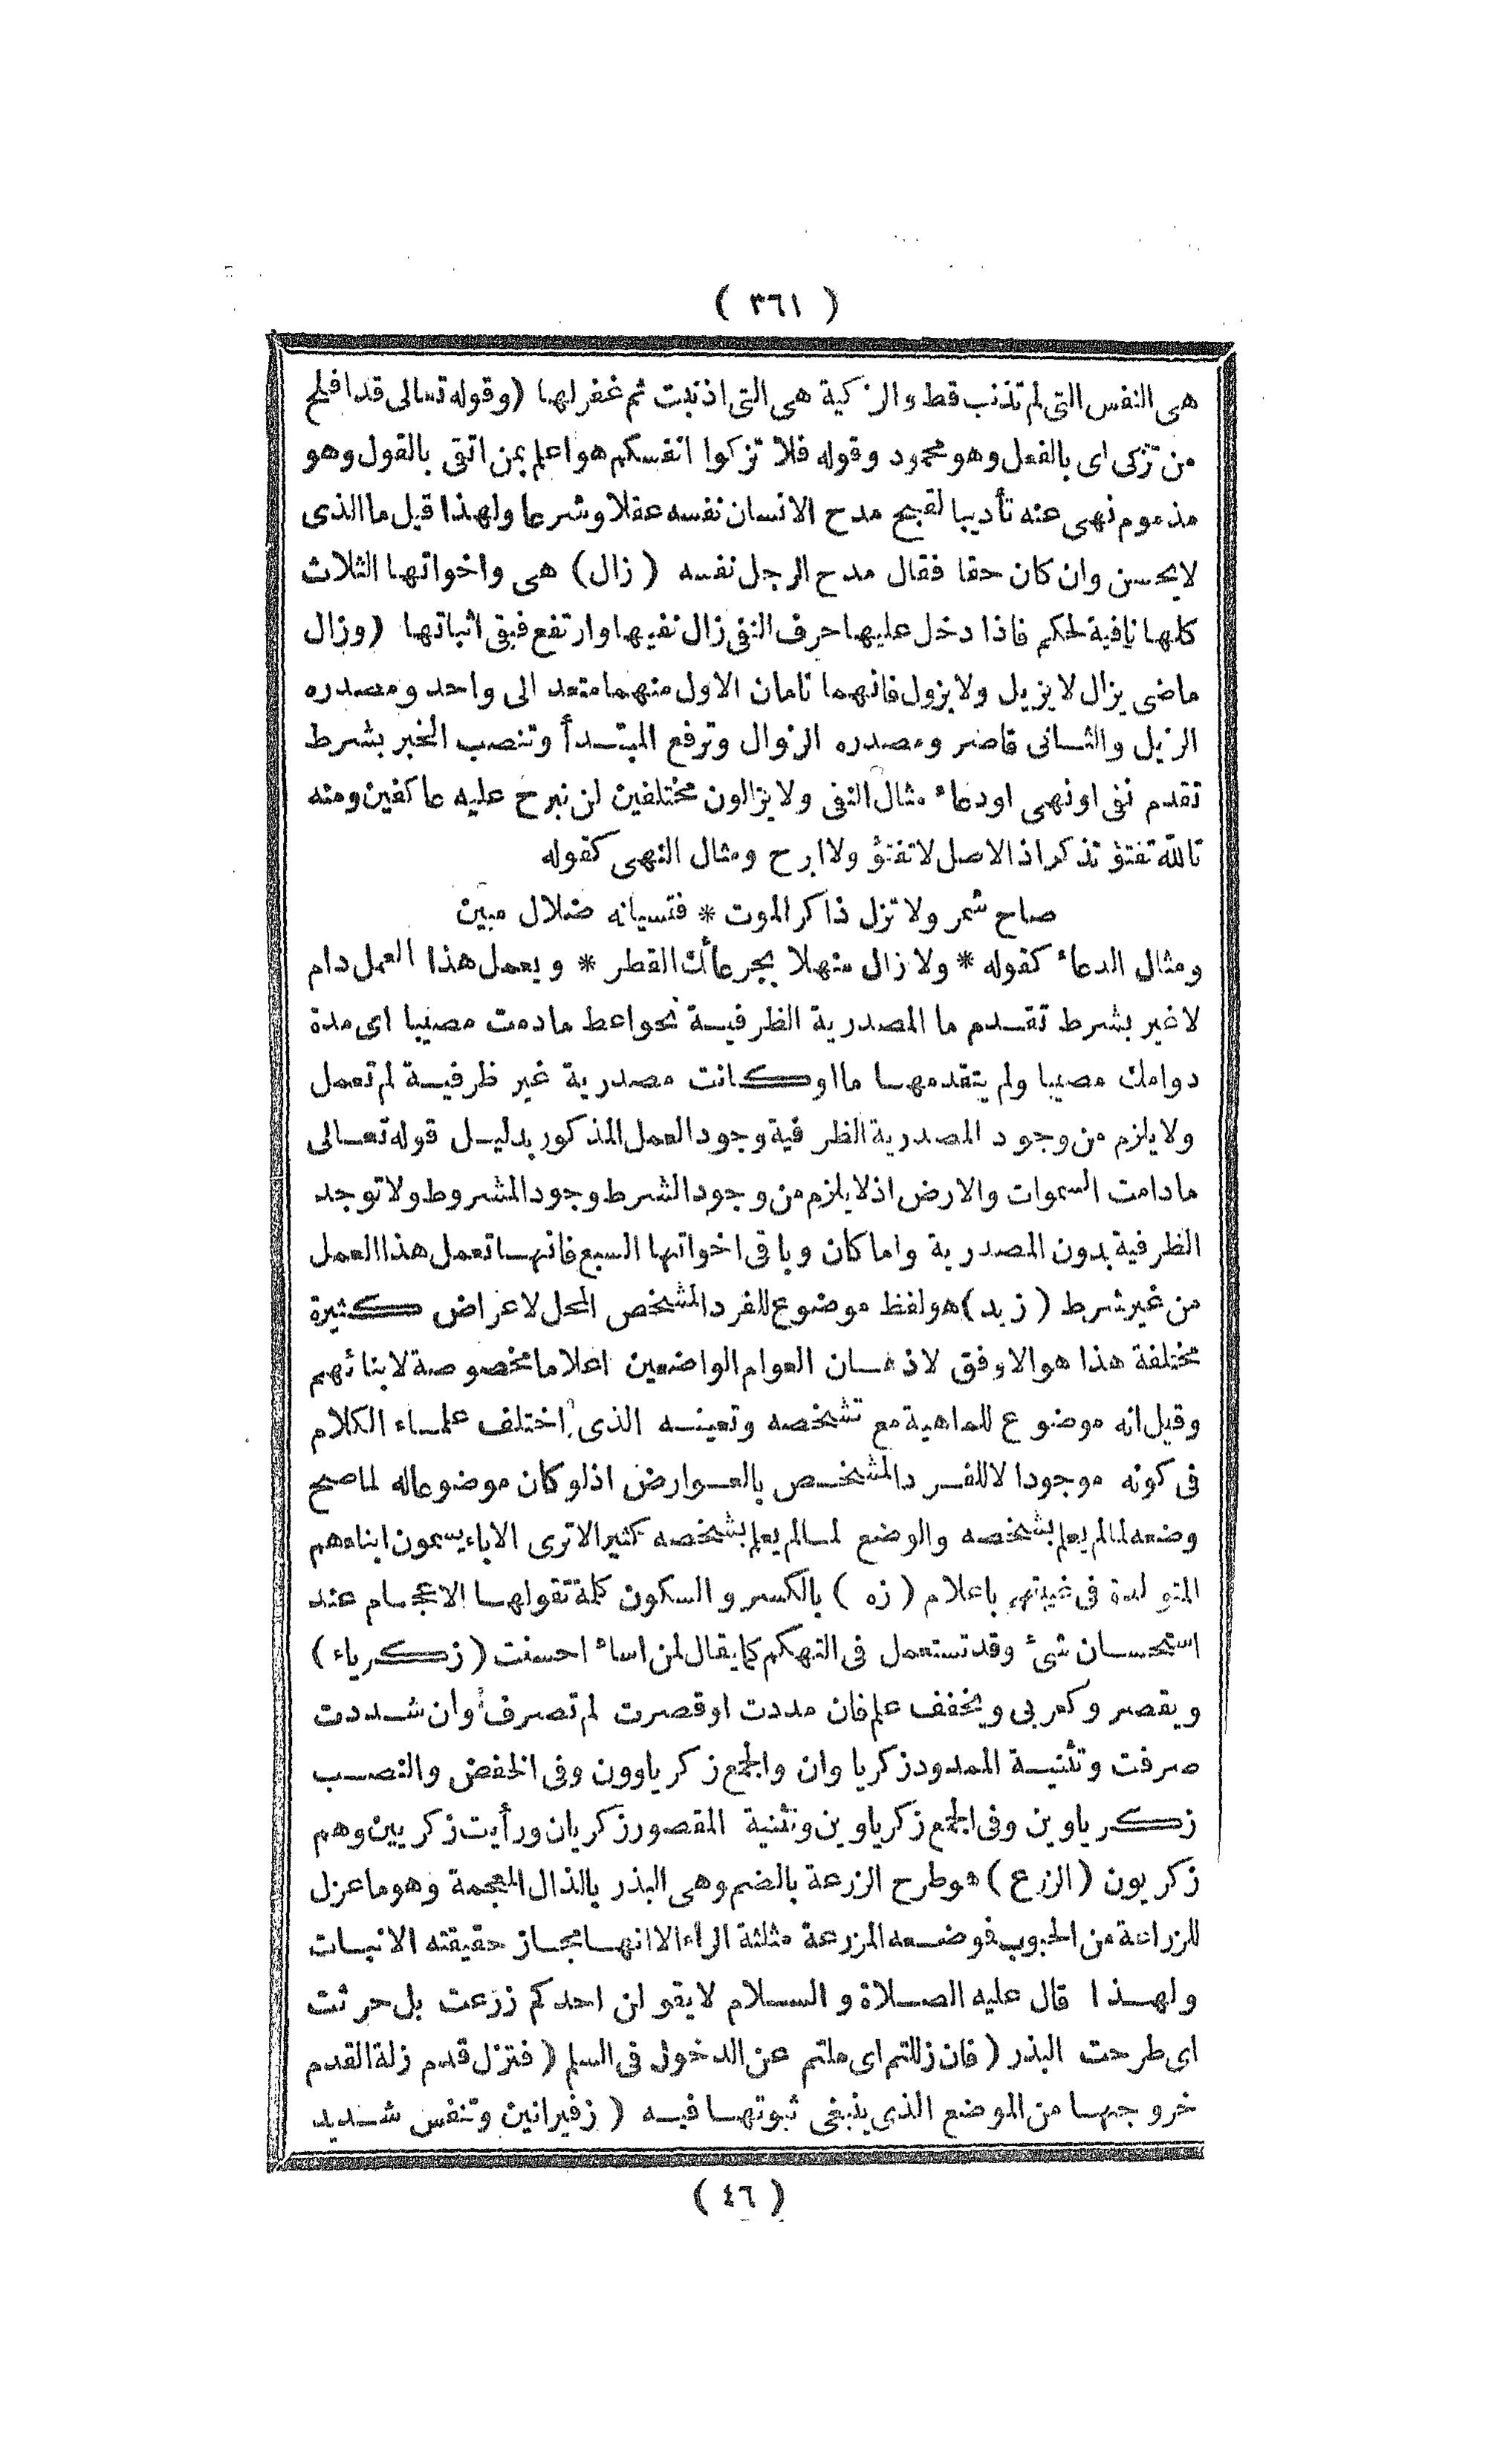 ( ٣٦١ )
هى النفس التى لم تذنب قط والزكية هى التى اذنبت ثم غفر لها (وقوله تعالى قد افلح
من تزكى اى بالفعل وهو محمود وقوله فلا تزكوا انفسكم هو اعلم بمن اتقى بالقول وهو
مذموم نهى عنه تأديبا لقبح مدح الانسان نفسه عقلا وشرعا ولهذا قيل ما الذى
لا يحسن وان كان حقا فقال مدح الرجل نفسه (زال) هى واخواتها الثلاث
كلها نافية لحكم فاذا دخل عليها حرف النفى زال نفيها وارتفع فبقى اثباتها (وزال
ماضى يزال لا يزيل ولا يزول فانهما تامان الاول منهما متعد الى واحد ومصدره
الزيل والثانى قاصر ومصدره الزوال وترفع المبتدأ وتنصب الخبر بشرط
تقدم نفى او نهى او دعاء مثال النفى ولا يزالون مختلفين لن نبرح عليه عاكفين ومنه
تالله تفتؤ تذكر اذ الاصل لا تفتؤ ولا ابرح ومثال النهى كقوله
صاح شمر ولا تزل ذاكر الموت * فنسيانه ضلال مبين
ومثال الدعاء كقوله * ولا زال منهلا بجرعائك القطر * ويعمل هذا العمل دام
لا غير بشرط تقدم ما المصدرية الظرفية نحو اعط ما دمت مصيبا اى مدة
دوامك مصيبا ولم يتقدمها ما او كانت مصدرية غير ظرفية لم تعمل
ولا يلزم من وجود المصدرية الظرفية وجود العمل المذكور بدليل قوله تعالى
ما دامت السموات والارض اذ لا يلزم من وجود الشرط وجود المشروط ولا توجد
الظرفية بدون المصدرية واما كان وباقى اخواتها السبع فانها تعمل هذا العمل
من غير شرط (زيد) هو لفظ موضوع للفرد المشخص المحل لاعراض كثيرة
مختلفة هذا هو الاوفق لاذهان العوام الواضعين اعلاما مخصوصة لابنائهم
وقيل انه موضوع للماهية مع تشخصه وتعينه الذى اختلف علماء الكلام
فى كونه موجودا لا للفرد المشخص بالعوارض اذ لو كان موضوعا له لما صح
وضعه لما لم يعلم بشخصه والوضع لما لم يعلم بشخصه كثير الا ترى الاباء يسمون ابناءهم
المتولدة فى غيبتهم باعلام (زه) بالكسر والسكون كلمة تقولها الاعجام عند
استحسان شئ وقد تستعمل فى التهكم كما يقال لمن اساء احسنت (زكرياء)
ويقصر وكعربى ويخفف علم فان مددت او قصرت لم تصرف وان شددت
صرفت وتثنية الممدود زكرياوان والجمع زكرياوون وفى الخفض والنصب
زكرياوين وفى الجمع زكرياوين وتثنية المقصور زكريان ورأيت زكريين وهم
زكريون (الزرع) هو طرح الزرعة بالضم وهى البذر بالذال المعجمة وهو ما عزل
للزراعة من الحبوب فوضعه المزرعة مثلثة الراء الا انها مجاز حقيقته الانبات
ولهذا قال عليه الصلاة والسلام لا يقولن احدكم زرعت بل حرثت
اى طرحت البذر (فان زللتم اى ملتم عن الدخول فى السلم (فتزل قدم زلة القدم
خروجها من الموضع الذى ينبغى ثبوتها فيه (زفير انين وتنفس شديد
( ٤٦ )